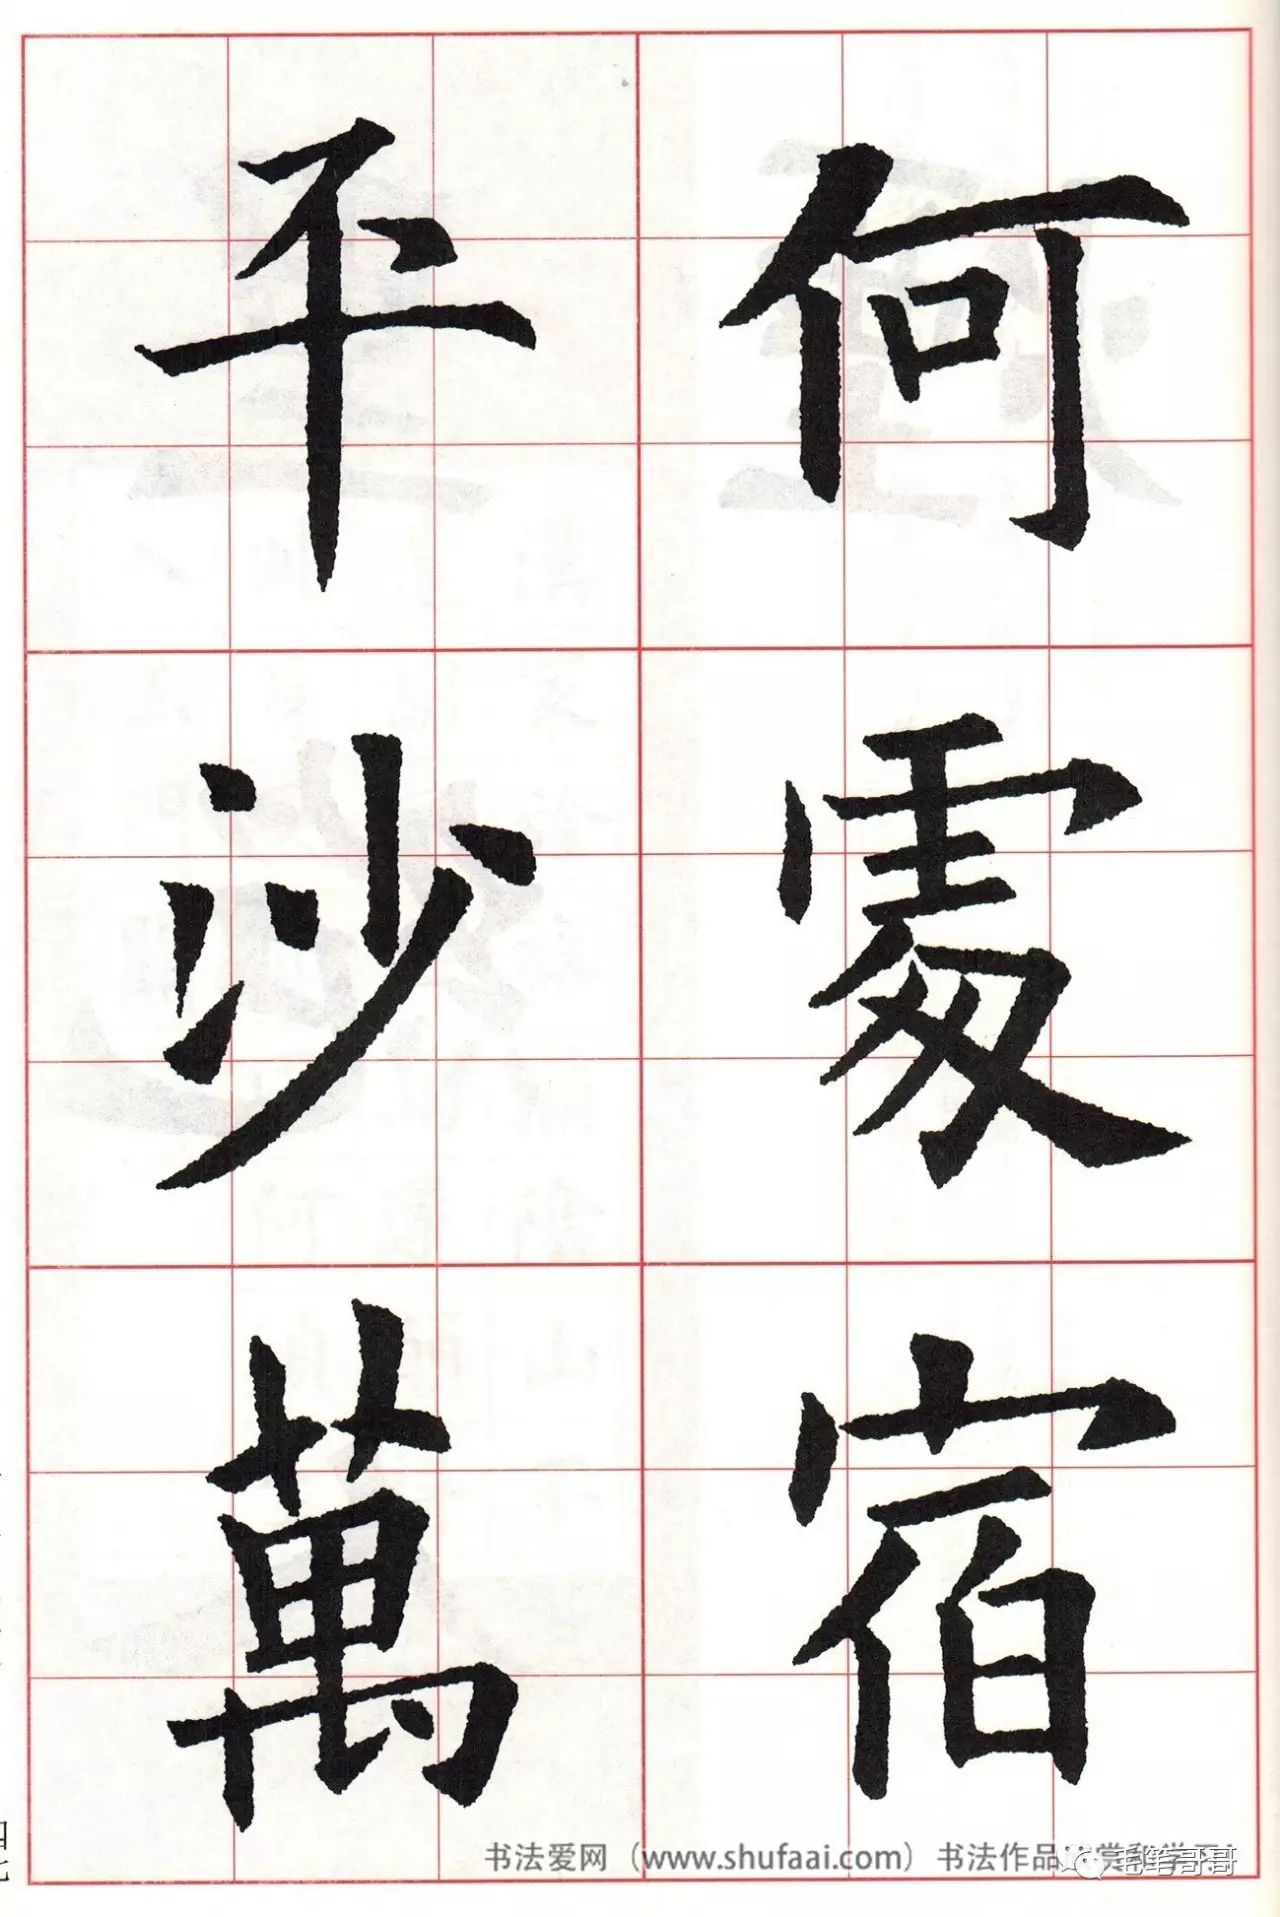 何處宿
平沙萬
四七
书法爱网（www.shufaai.com）书法作品
毛笔哥哥